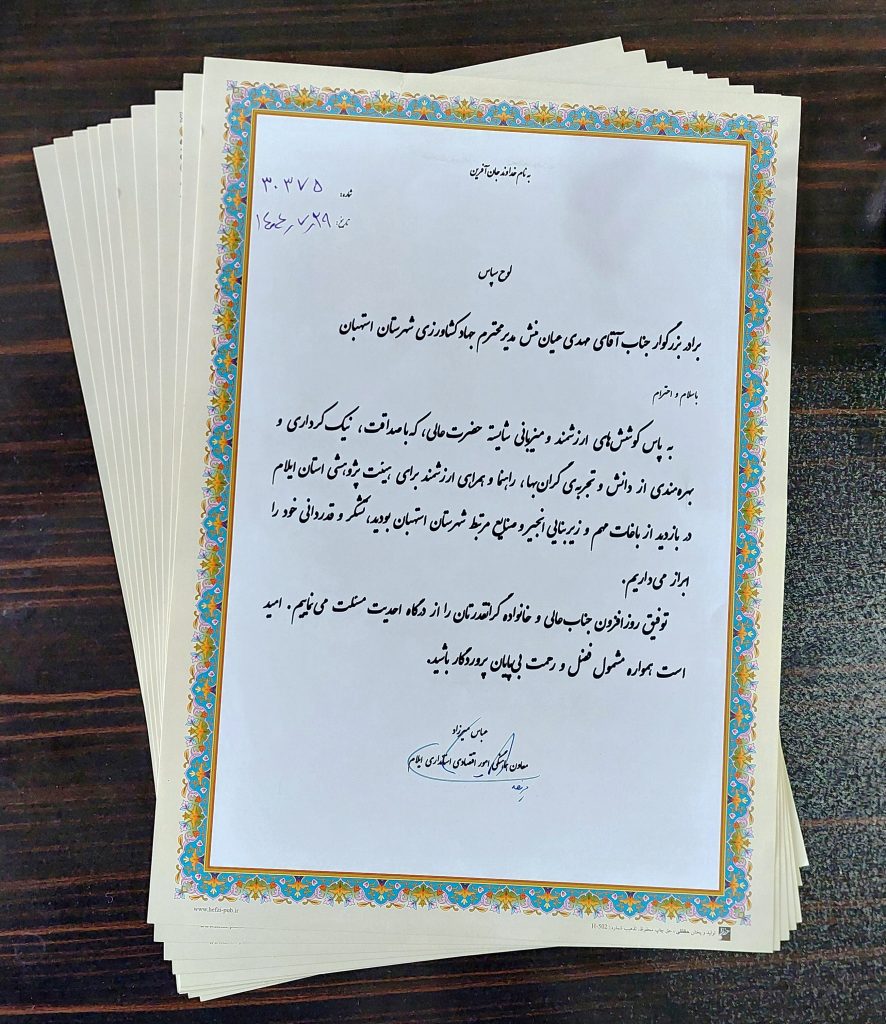 به نام خداوند جان آفرین
شماره: ۳۰۳۷۵
تاریخ: ۱۴۰۴/۷/۲۹
لوح سپاس
برادر بزرگوار جناب آقای مهدی میان منش مدیر محترم جهاد کشاورزی شهرستان استهبان
با سلام و احترام
به پاس کوشش‌های ارزشمند و میزبانی شایسته حضرت‌عالی، که با صداقت، نیک کرداری و
بهره‌مندی از دانش و تجربه‌ی گران‌بها، راهنما و همراهی ارزشمند برای هیئت پژوهشی استان ایلام
در بازدید از باغات مهم و زیربنایی انجیر و صنایع مرتبط شهرستان استهبان بودید، تشکر و قدردانی خود را
ابراز می‌داریم.
توفیق روز افزون جناب‌عالی و خانواده گرانقدرتان را از درگاه احدیت مسئلت می‌نماییم. امید
است همواره مشمول فضل و رحمت بی‌پایان پروردگار باشید.
عباس
معاون هماهنگی امور اقتصادی استانداری ایلام
www.hefzi-pub.ir
تولید و پخش حفظی - حق چاپ محفوظ، تذهیب شماره: H-502